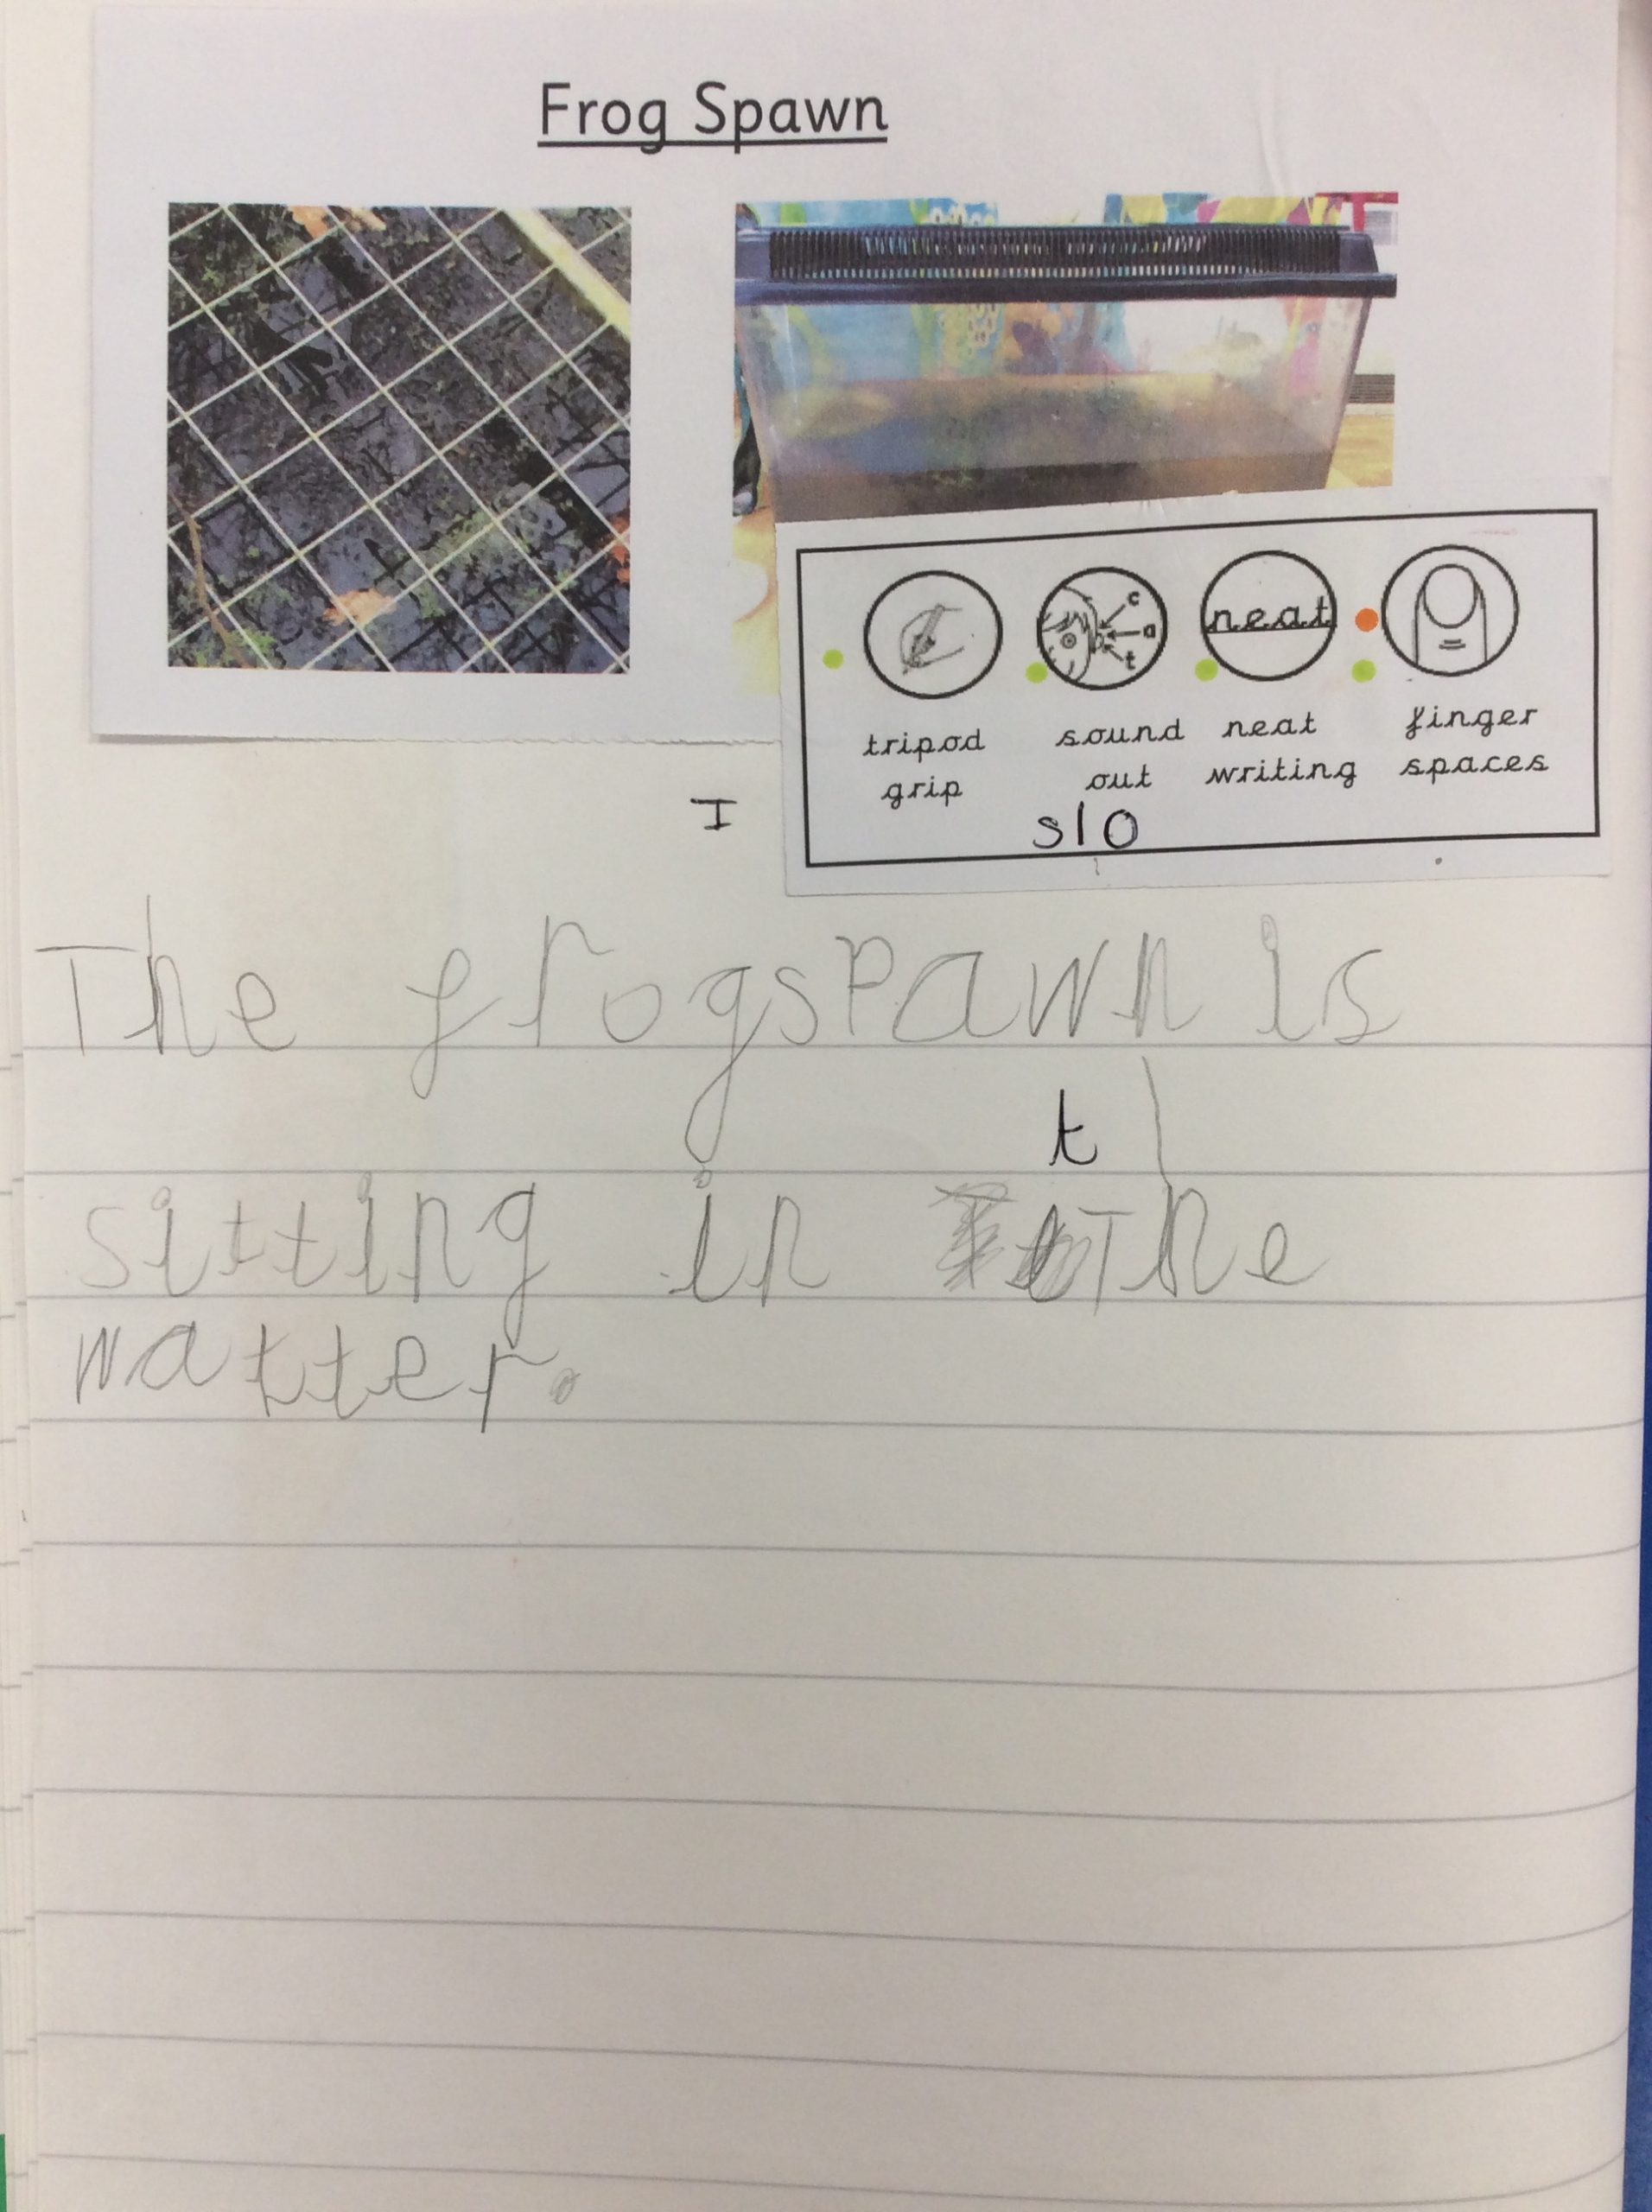 Frog Spawn
c
a
t
neat
tripod grip
sound out
neat writing
finger spaces
s/o
I
The frogspawn is
t
sitting in The
watter.